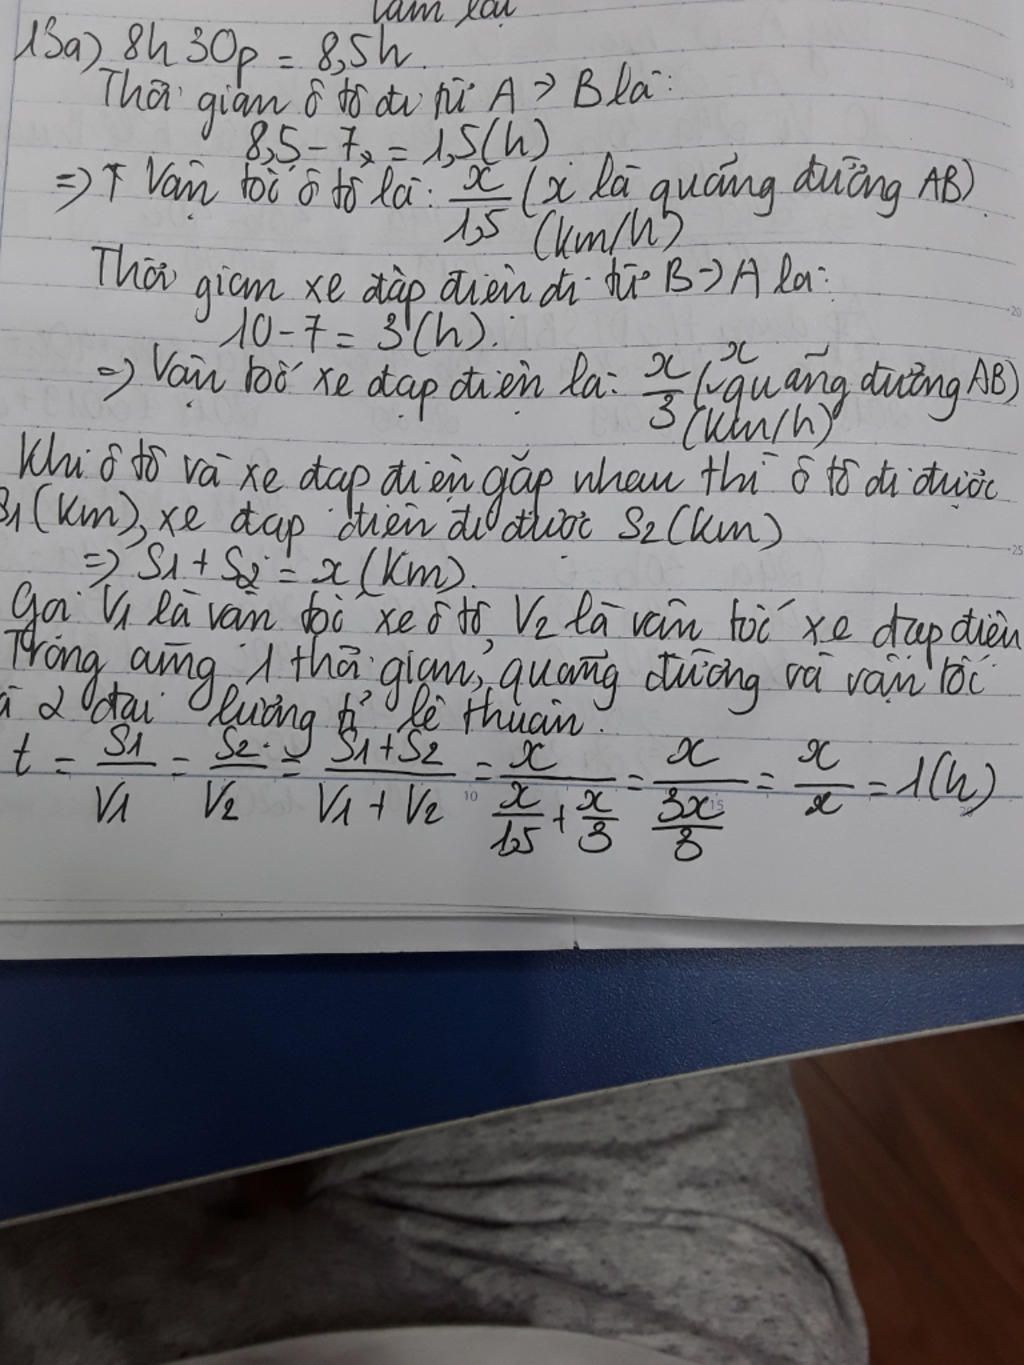 làm lại
13a) 8h 30p = 8,5h.
Thời gian ô tô đi từ A → B là:
8,5 - 7 = 1,5(h)
=> Vận tốc ô tô là: x/1,5 (x là quãng đường AB)
(km/h)
Thời gian xe đạp điện đi từ B → A là:
10 - 7 = 3(h).
=> Vận tốc xe đạp điện là: x/3 (x quãng đường AB)
(km/h)
Khi ô tô và xe đạp điện gặp nhau thì ô tô đi được
S1(km), xe đạp điện đi được S2(km)
=> S1 + S2 = x(km).
Gọi V1 là vận tốc xe ô tô, V2 là vận tốc xe đạp điện
Trong cùng 1 thời gian, quãng đường và vận tốc
là 2 đại lượng tỉ lệ thuận.
t = S1/V1 = S2/V2 = (S1 + S2)/(V1 + V2) = x/(x/1,5 + x/3) = x/(3x/3) = x/x = 1(h)